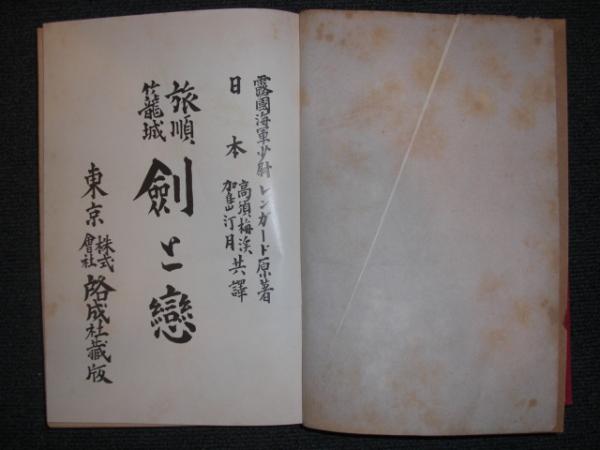 露國海軍少尉レンガード原著
日本 高須梅溪 加島汀月 共譯
旅順籠城 劍と戀
東京 株式會社 啓成社藏版